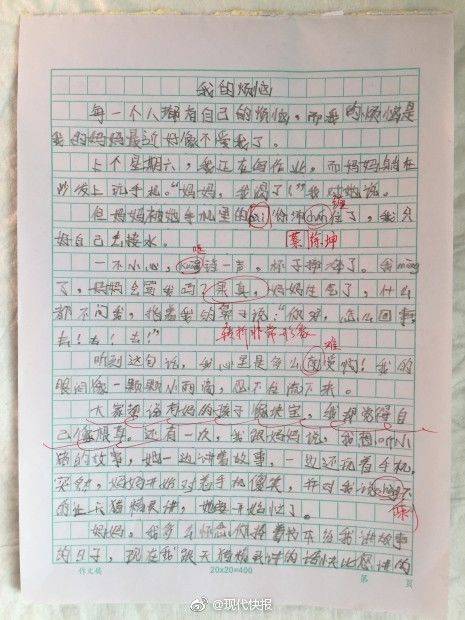 我的烦恼
每一个人都有自己的烦恼，而我的烦恼是
我的妈妈最近好像不爱我了。
上个星期六，我正在写作业，而妈妈躺在
沙发上玩手机。“妈妈，我渴了！”我对她说。
但妈妈被她手机里的
住了，我只
好自己去接水。
蔡徐坤
一不小心，
一声，杯子摔碎了。我mīng
了，妈妈会骂我吗？果真，妈妈生气了，什么
都不问我，指着我的鼻子说：“你呀，怎么回事，
去！去！去！”
转折非常形象
难
听到这句话，我心里是多么南受啊！我的
眼泪像一颗颗小雨滴，忍不住流下来。
大家都说有妈的孩子像块宝，我却觉得自
己像根草。还有一次，我跟妈妈说，我想听小
猪的故事，她一边讲着故事，一边还说看手机，
突然，妈妈开始对着手机傻笑，并对我说
的让天猫精灵讲，她
妈妈，我多么怀念你拿着书本给我讲故事
的日子，现在我跟天猫精灵讲的话快比您讲的
作文稿
20×20=400
第 页
@现代快报